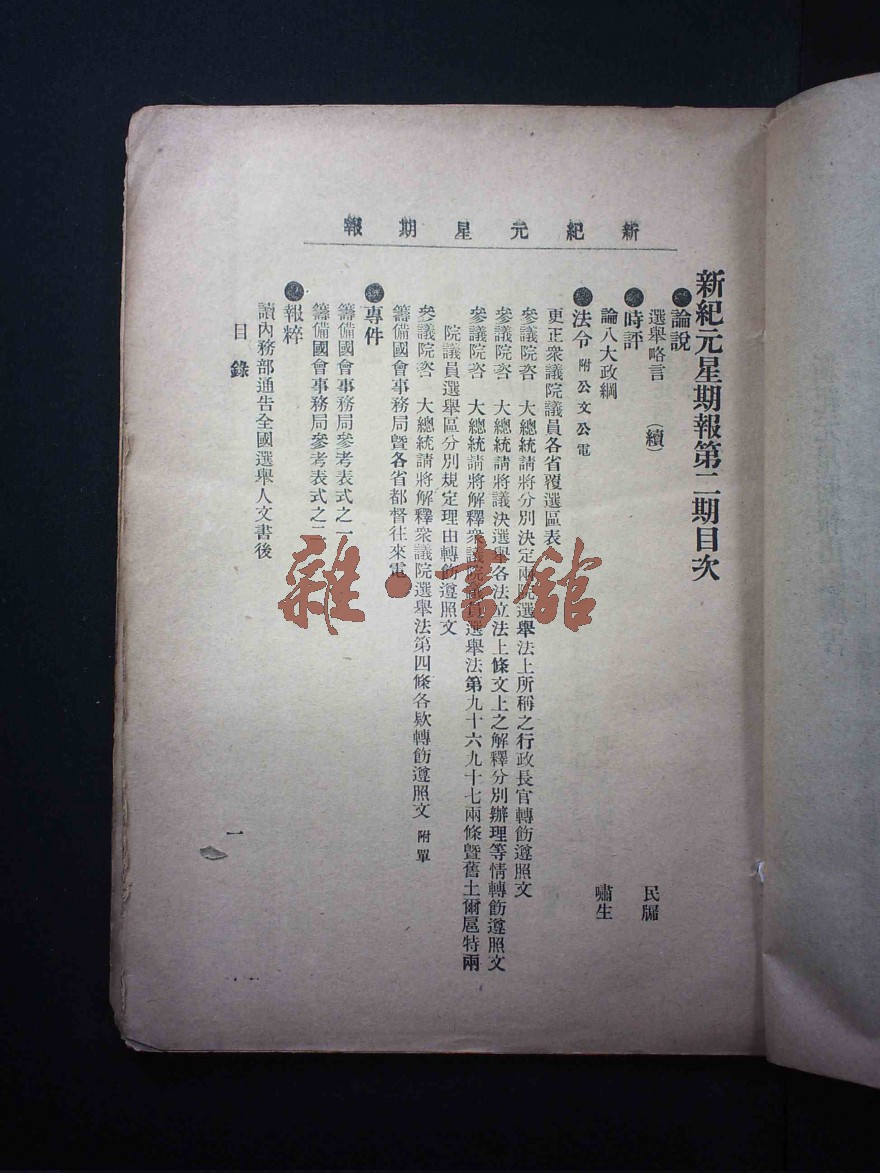 新紀元星期報
新紀元星期報第二期目次
論說
選舉略言（續） 民牖
時評
論八大政綱 嘯生
法令 附公文公電
更正衆議院議員各省覆選區表
參議院咨 大總統請將分別決定兩院選舉法上所稱之行政長官轉飭遵照文
參議院咨 大總統請將議決選舉各法立法上條文上之解釋分別辦理等情轉飭遵照文
參議院咨 大總統請將解釋衆議院議員選舉法第九十六九十七兩條暨舊土爾扈特兩
院議員選舉區分別規定理由轉飭遵照文
參議院咨 大總統請將解釋衆議院選舉法第四條各欵轉飭遵照文 附單
籌備國會事務局暨各省都督往來電
專件
籌備國會事務局參考表式之一
籌備國會事務局參考表式之二
報粹
讀內務部通告全國選舉人文書後
目錄
一
雜·書館